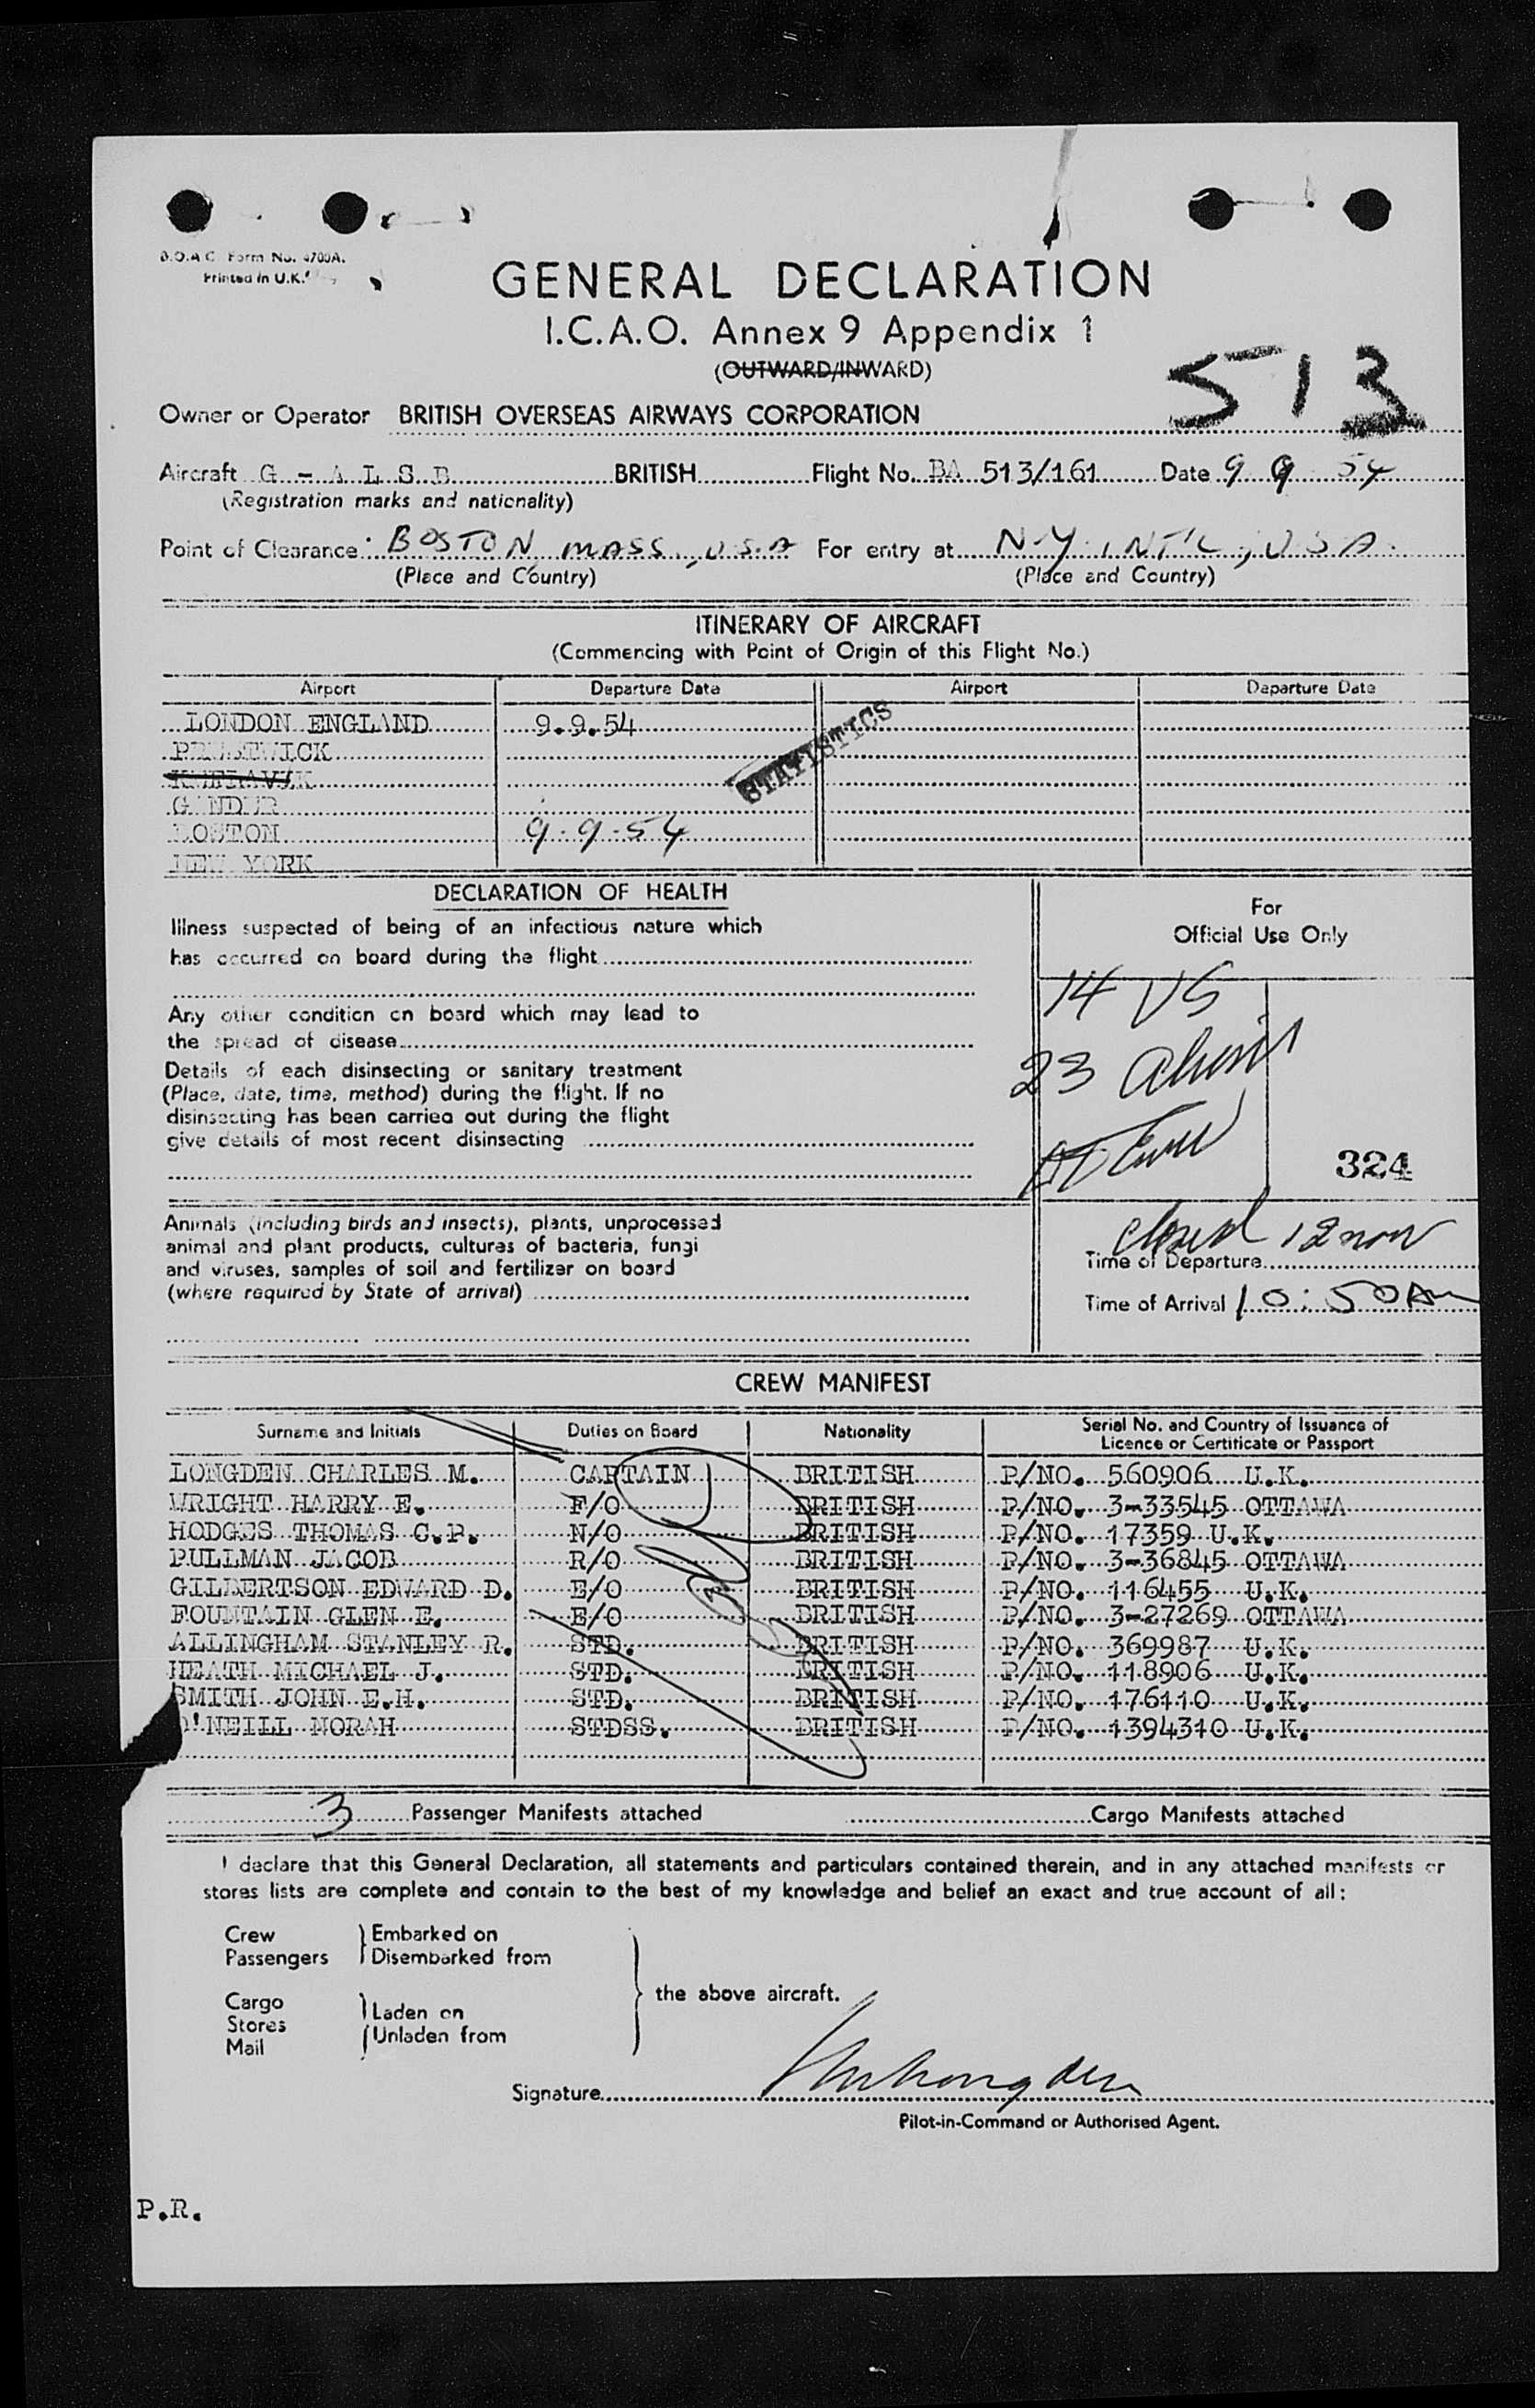 B.O.A.C. Form No. 4700A.
Printed in U.K.
GENERAL DECLARATION
I.C.A.O. Annex 9 Appendix 1
(OUTWARD/INWARD)
513
Owner or Operator BRITISH OVERSEAS AIRWAYS CORPORATION
Aircraft G - A L S B BRITISH Flight No. BA 513/161 Date 9 9 54
(Registration marks and nationality)
Point of Clearance BOSTON, MASS, U.S.A For entry at N.Y. INT'L, USA.
(Place and Country) (Place and Country)
ITINERARY OF AIRCRAFT
(Commencing with Point of Origin of this Flight No.)
Airport Departure Date Airport Departure Date
LONDON ENGLAND 9.9.54
PRESTWICK
KEFLAVIK
GANDER
BOSTON 9.9.54
NEW YORK
STATISTICS
DECLARATION OF HEALTH
Illness suspected of being of an infectious nature which
has occurred on board during the flight
Any other condition on board which may lead to
the spread of disease
Details of each disinsecting or sanitary treatment
(Place, date, time, method) during the flight. If no
disinsecting has been carried out during the flight
give details of most recent disinsecting
For
Official Use Only
14 US
23 Aliens
324
Animals (including birds and insects), plants, unprocessed
animal and plant products, cultures of bacteria, fungi
and viruses, samples of soil and fertilizer on board
(where required by State of arrival)
closed 12 noon
Time of Departure
Time of Arrival 10:50 Am
CREW MANIFEST
Surname and Initials Duties on Board Nationality Serial No. and Country of Issuance of
Licence or Certificate or Passport
LONGDEN CHARLES M. CAPTAIN BRITISH P/NO. 560906 U.K.
WRIGHT HARRY E. F/O BRITISH P/NO. 3-33545 OTTAWA
HODGES THOMAS C.P. N/O BRITISH P/NO. 17359 U.K.
PULLMAN JACOB R/O BRITISH P/NO. 3-36845 OTTAWA
GILBERTSON EDWARD D. E/O BRITISH P/NO. 116455 U.K.
FOUNTAIN GLEN E. E/O BRITISH P/NO. 3-27269 OTTAWA
ALLINGHAM STANLEY R. STD. BRITISH P/NO. 369987 U.K.
HEATH MICHAEL J. STD. BRITISH P/NO. 118906 U.K.
SMITH JOHN E.H. STD. BRITISH P/NO. 176110 U.K.
O'NEILL NORAH STDSS. BRITISH P/NO. 1394310 U.K.
3 Passenger Manifests attached Cargo Manifests attached
I declare that this General Declaration, all statements and particulars contained therein, and in any attached manifests or
stores lists are complete and contain to the best of my knowledge and belief an exact and true account of all:
Crew
Passengers
Embarked on
Disembarked from
Cargo
Stores
Mail
Laden on
Unladen from
the above aircraft.
Signature
Pilot-in-Command or Authorised Agent.
P.R.